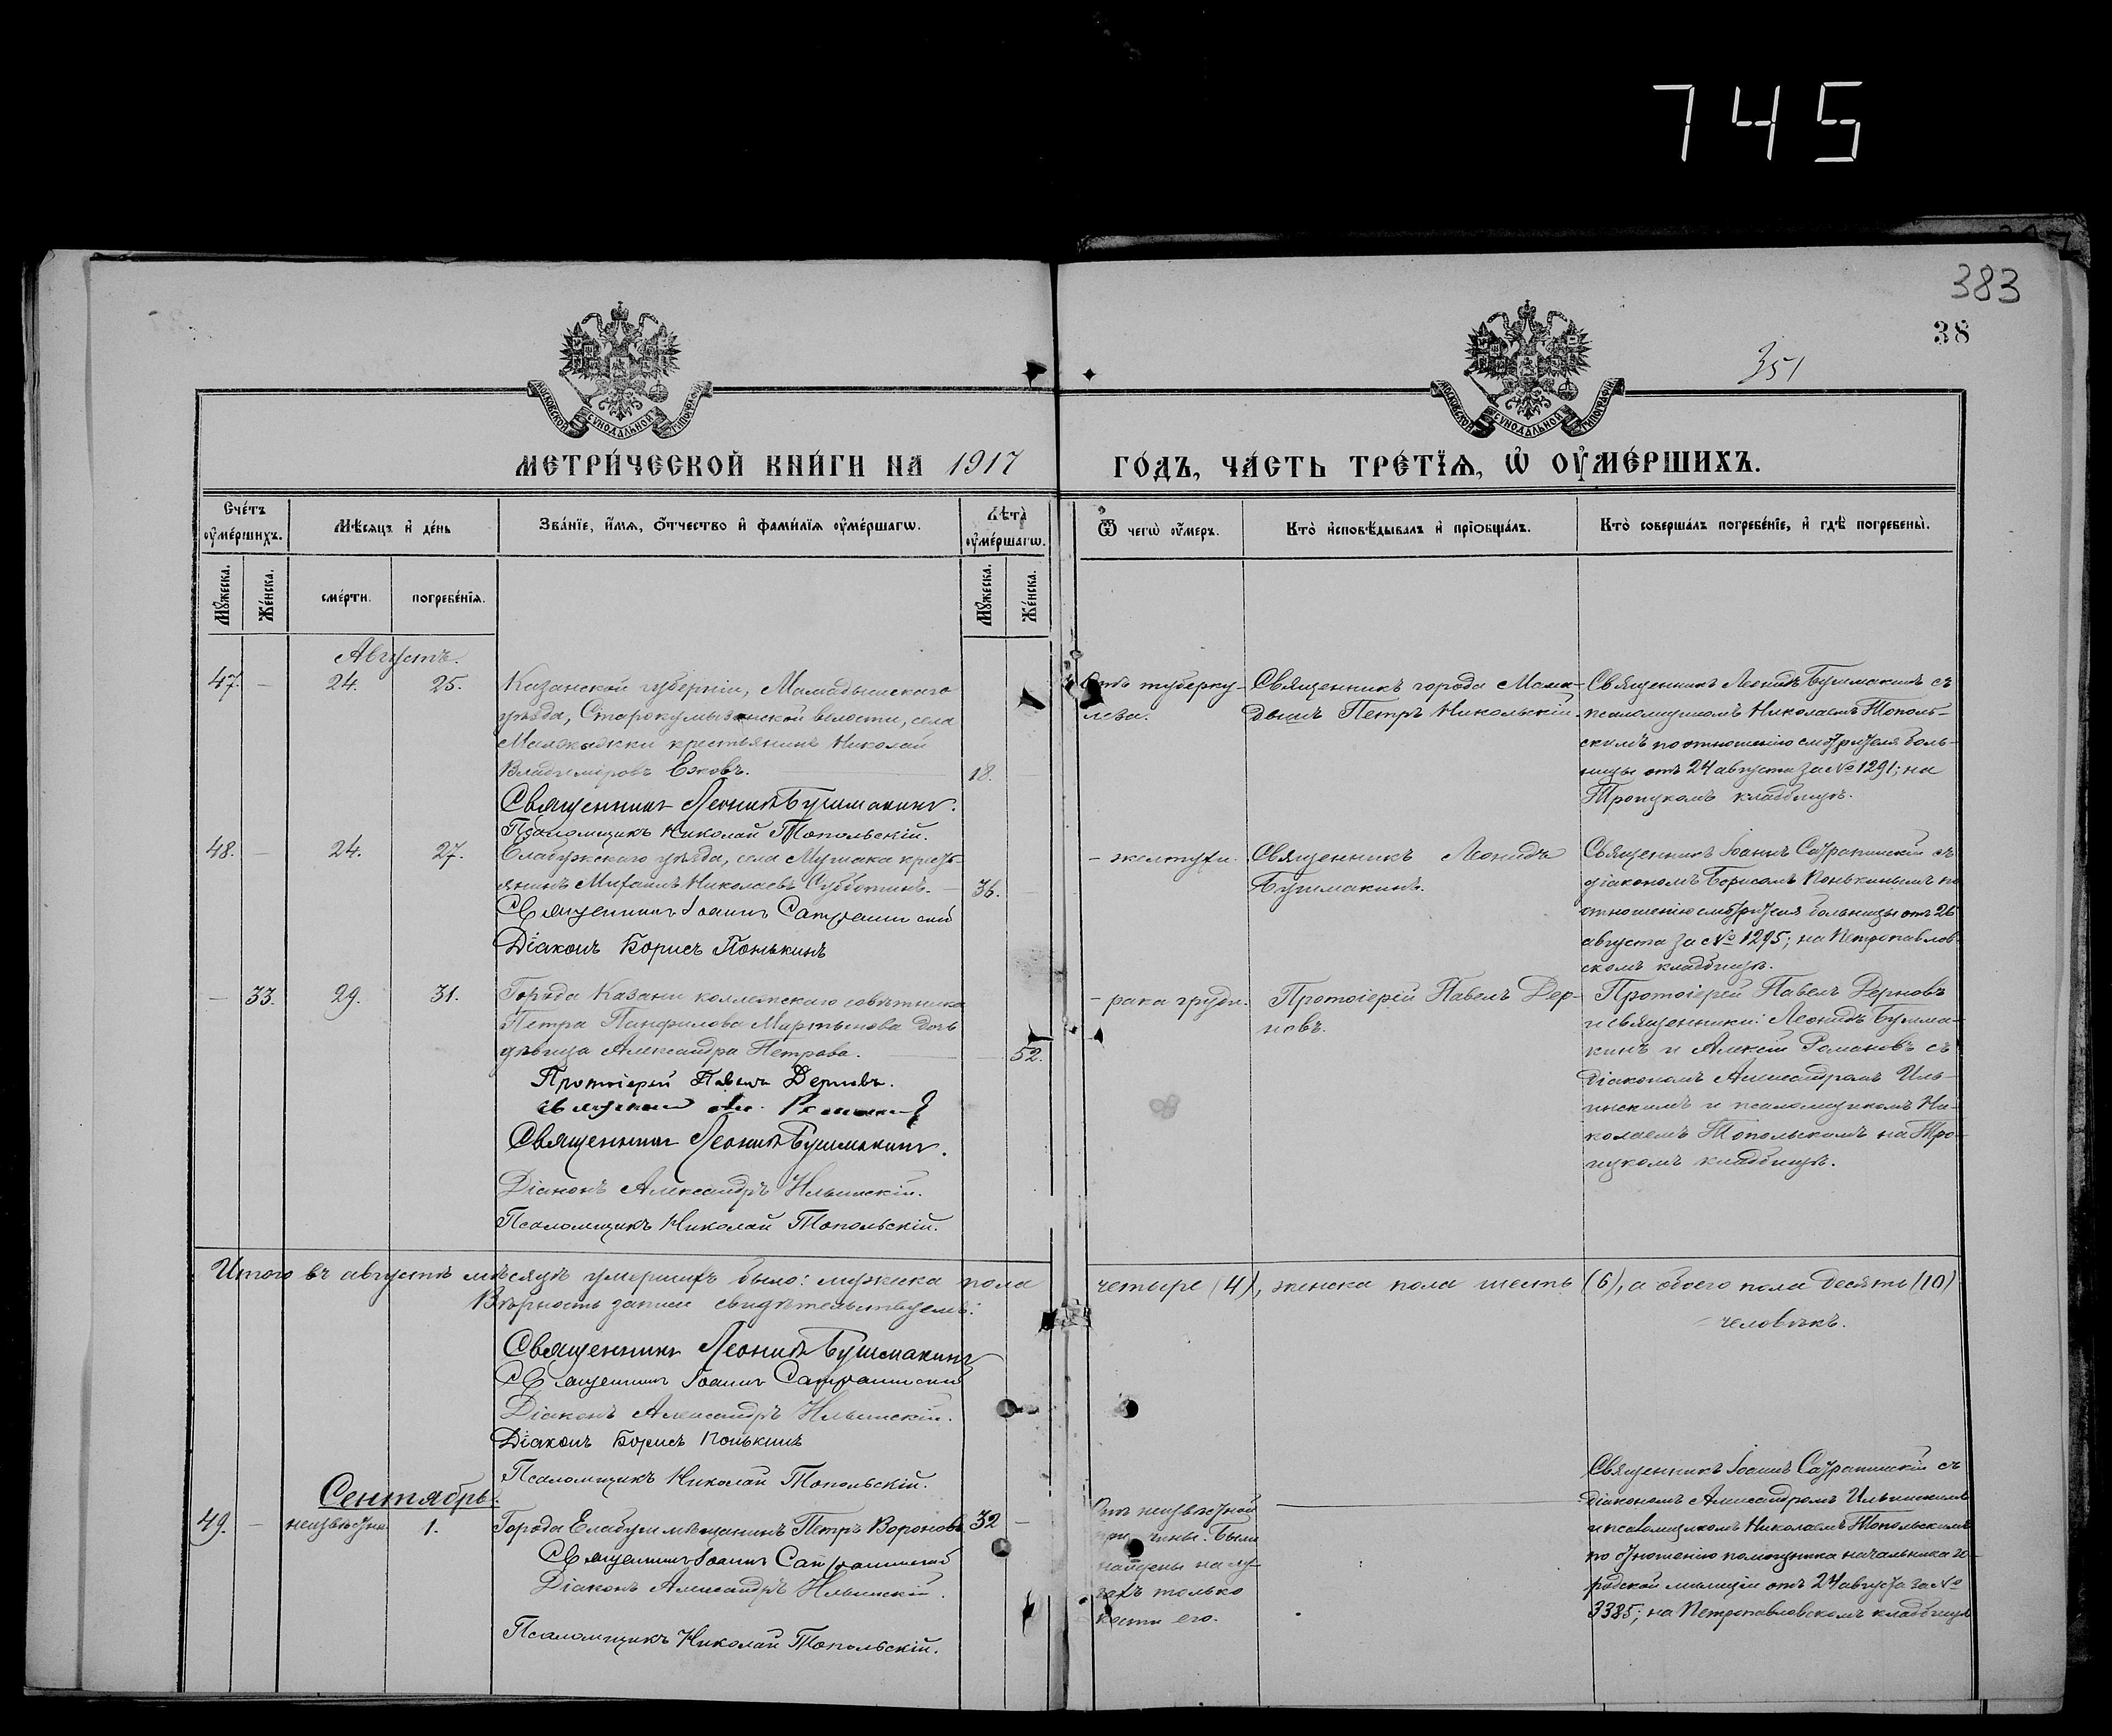 745
383
38
351
МОСКОВСКОЙ СѴНОДАЛЬНОЙ ТИПОГРАФІИ
МОСКОВСКОЙ СѴНОДАЛЬНОЙ ТИПОГРАФІИ
МЕТРИ́ЧЕСКОЙ КНИ́ГИ НА 1917 ГО́ДЪ, ЧА́СТЬ ТРЕ́ТЇѦ, Ѡ҆ ОУ҆МЕ́РШИХЪ.
Сче́тъ оу҆ме́ршихъ.
Мѣ́сяцъ и҆ де́нь
Зва́нїе, и҆́мѧ, ѻ҆́тчество и҆ фами́лїѧ оу҆ме́ршагѡ.
Лѣта̀ оу҆ме́ршагѡ.
Ѿ чегѡ̀ оу҆́меръ.
Кто̀ и҆сповѣ́дывалъ и҆ прїѡбща́лъ.
Кто̀ соверша́лъ погребе́нїе, и҆ гдѣ̀ погребены̀.
Мꙋ́жеска.
Же́нска.
сме́рти.
погребе́нїѧ.
Мꙋ́жеска.
Же́нска.
Августъ.
47. – 24. 25.
Казанской губерніи, Мамадышскаго
уѣзда, Старокумызанской волости, села
Малмыжки крестьянинъ Николай
Владиміровъ Ежовъ. 18. –
Священникъ Леонидъ Бушмакинъ.
Псаломщикъ Николай Топольскій.
Отъ туберку-
леза.
Священникъ города Мама-
дышъ Петръ Никольскій.
Священникъ Леонидъ Бушмакинъ съ
псаломщикомъ Николаемъ Тополь-
скимъ по отношенію смотрителя боль-
ницы отъ 24 августа за № 1291; на
Троицкомъ кладбищѣ.
48. – 24. 27.
Елабужскаго уѣзда, села Мушака кресть-
янинъ Михаилъ Николаевъ Субботинъ. – 36. –
Священникъ Іоаннъ Сатрапинскій
Діаконъ Борисъ Понькинъ
– желтухи.
Священникъ Леонидъ
Бушмакинъ.
Священникъ Іоаннъ Сатрапинскій съ
діакономъ Борисомъ Понькинымъ по
отношенію смотрителя больницы отъ 26
августа за № 1295; на Петропавлов-
скомъ кладбищѣ.
– 33. 29. 31.
Города Казани коллежскаго совѣтника
Петра Панфилова Мартынова дочь
дѣвица Александра Петрова. – 52.
Протоіерей Павелъ Дерновъ.
Священникъ Романовъ
Священникъ Леонидъ Бушмакинъ.
Діаконъ Александръ Ильинскій.
Псаломщикъ Николай Топольскій.
– рака груди.
Протоіерей Павелъ Дер-
новъ.
Протоіерей Павелъ Дерновъ
и священники: Леонидъ Бушма-
кинъ и Алексій Романовъ съ
діакономъ Александромъ Иль-
инскимъ и псаломщикомъ Ни-
колаемъ Топольскимъ на Тро-
ицкомъ кладбищѣ.
Итого въ августѣ мѣсяцѣ умершихъ было: мужеска пола четыре (4), женска пола шесть (6), а обоего пола десять (10)
человѣкъ.
Вѣрность записи свидѣтельствуемъ:
Священникъ Леонидъ Бушмакинъ
Священникъ Іоаннъ Сатрапинскій
Діаконъ Александръ Ильинскій.
Діаконъ Борисъ Понькинъ
Псаломщикъ Николай Топольскій.
Сентябрь.
49. – неизвѣстно. 1.
Города Елабуги мѣщанинъ Петръ Вороновъ. 32 –
Священникъ Іоаннъ Сатрапинскій
Діаконъ Александръ Ильинскій.
Псаломщикъ Николай Топольскій.
Отъ неизвѣстной
причины. Были
найдены на лу-
гахъ только
кости его.
Священникъ Іоаннъ Сатрапинскій съ
діакономъ Александромъ Ильинскимъ
и псаломщикомъ Николаемъ Топольскимъ
по отношенію помощника начальника го-
родской милиціи отъ 24 августа за №
3385; на Петропавловскомъ кладбищѣ